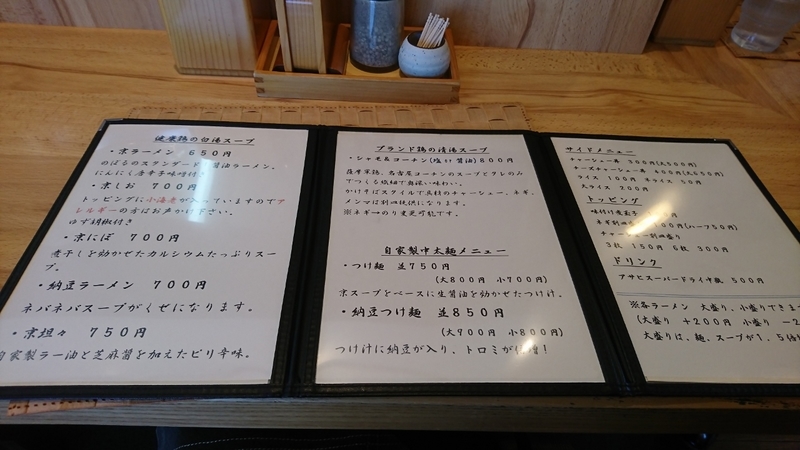 健康鶏の白湯スープ
・京ラーメン 650円
のぼるのスタンダード 醤油ラーメン。
にんにく唐辛子味噌付き
・京しお 700円
トッピングに小海老が入っていますのでア
レルギーの方はお声かけ下さい。
ゆず胡椒付き
・京にぼ 700円
煮干しを効かせたカルシウムたっぷりスー
プ。
・納豆ラーメン 700円
ネバネバスープがくせになります。
・京坦々 750円
自家製ラー油と芝麻醤を加えたピリ辛味。
ブランド鶏の清湯スープ
・シャモ&コーチン(塩い醤油)800円
薩摩軍鶏、名古屋コーチンのスープとタレのみ
でつくる繊細で奥深い味わい。
かけそばスタイルで具材のチャーシュー、ネギ、
メンマは別皿提供になります。
※ネギ→のり変更可能です。
自家製中太麺メニュー
・つけ麺 並750円
(大800円 小700円)
京スープをベースに生醤油を効かせたつけ汁。
・納豆つけ麺 並850円
(大900円 小800円)
つけ汁に納豆が入り、トロミが倍増!
サイドメニュー
チャーシュー丼 300円(大550円)
チーズチャーシュー丼 400円(大650円)
ライス 100円 半ライス 50円
大ライス 200円
トッピング
味付け煮玉子
ネギ別皿 100円(ハーフ50円)
チャーシュー別皿盛り
3枚 150円 6枚 300円
ドリンク
アサヒスーパードライ中瓶 500円
※各ラーメン 大盛り、小盛りできま
(大盛り +200円 小盛り -
大盛りは、麺、スープが1.5倍